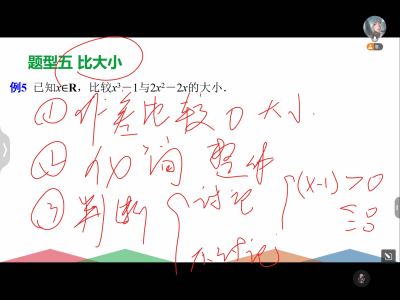 题型五 比大小
例5 已知x∈R，比较x³－1与2x²－2x的大小．
① 作差比较 0 大小
②
③ 判断 { 讨论 { (x-1) > 0
≤ 0
不讨论